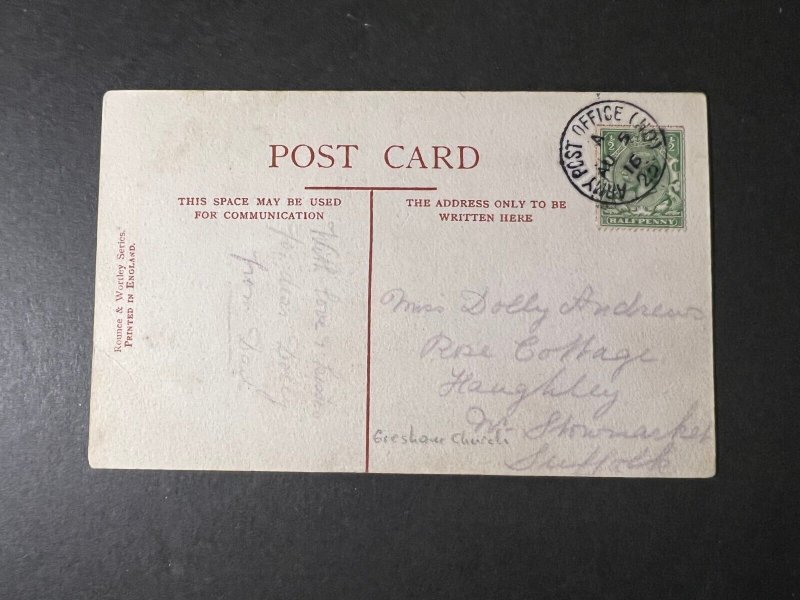 POST CARD
THIS SPACE MAY BE USED
FOR COMMUNICATION
THE ADDRESS ONLY TO BE
WRITTEN HERE
ARMY POST OFFICE (HD)
4
AU 5
16
25
½ ½
HALFPENNY
Rounce & Wortley Series.
PRINTED IN ENGLAND.
With love &
from
Miss Dolly Andrews
Rose Cottage
Haughley
Nr Stowmarket
Suffolk
Gresham Church